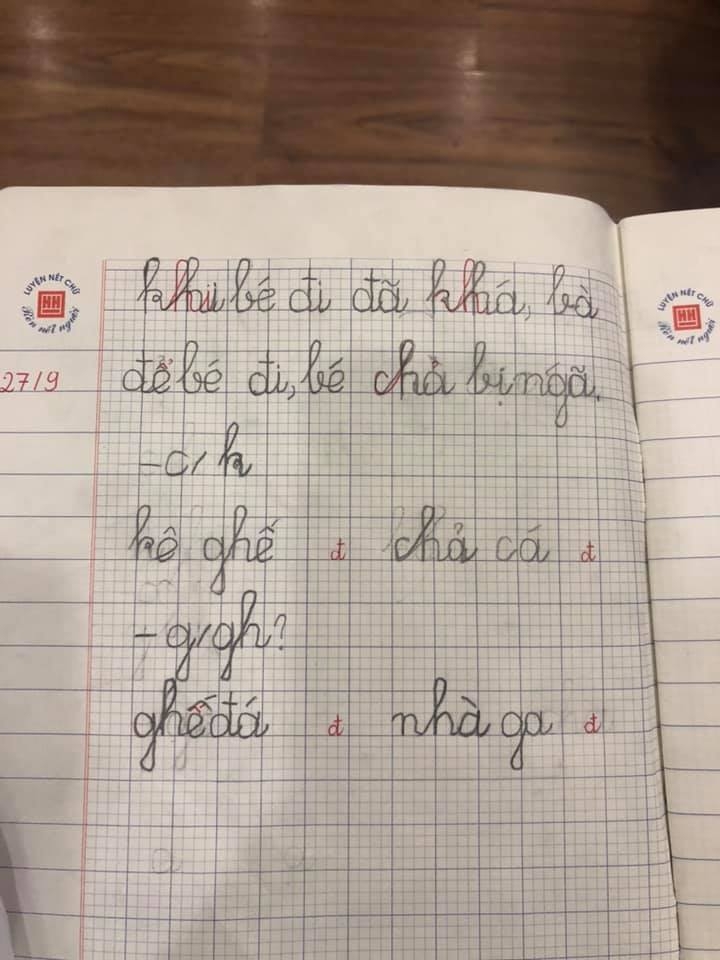 LUYỆN NẾT CHỮ
HH
Rèn nết người
LUYỆN NẾT CHỮ
HH
Rèn nết người
khi bé đi đã khá, bà
27/9
để bé đi, bé chả bị ngã.
- c/k
kê ghế đ chả cá đ
- g/gh?
ghế đá đ nhà ga đ